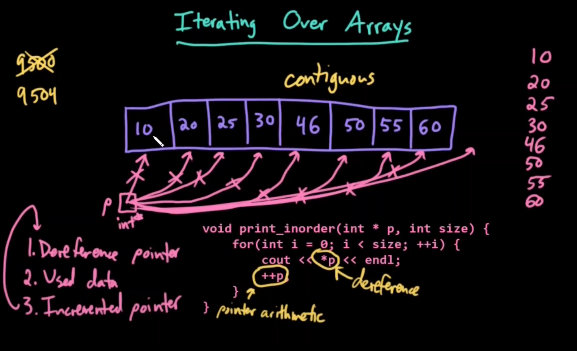 Iterating Over Arrays
9500
9504
contiguous
10 20 25 30 46 50 55 60
10
20
25
30
46
50
55
60
p
int*
1. Dereference pointer
2. Used data
3. Incremented pointer
void print_inorder(int * p, int size) {
for(int i = 0; i < size; ++i) {
cout << *p << endl;
++p
}
}
dereference
pointer arithmetic